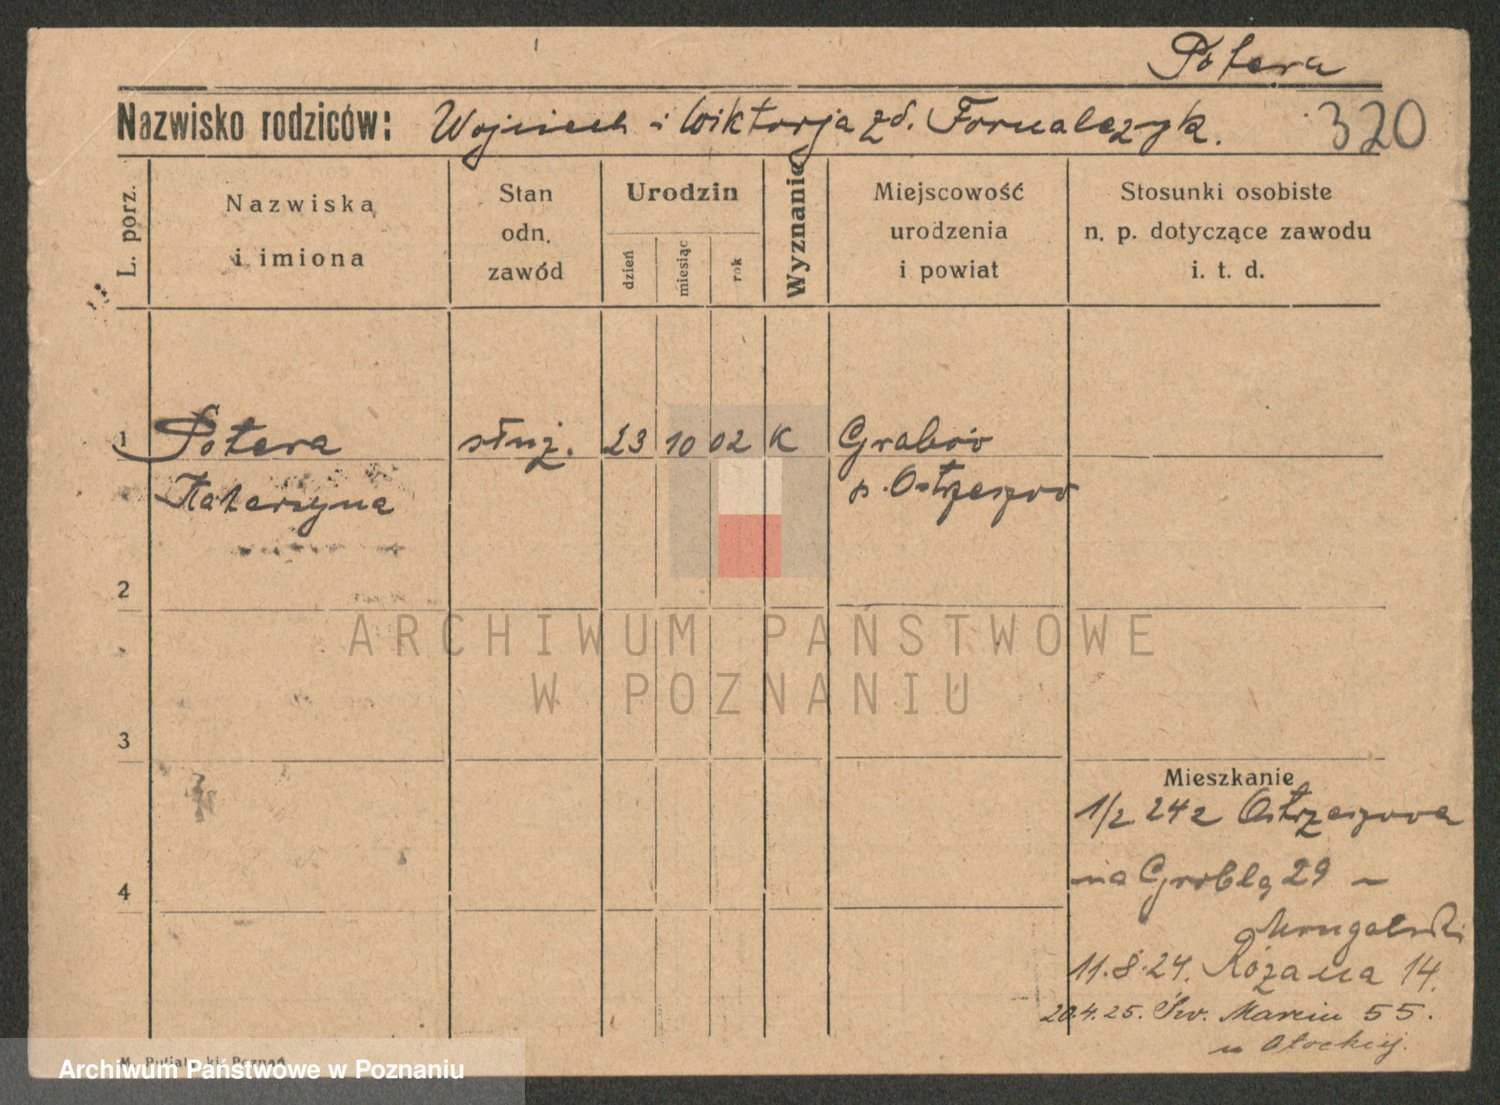 Potera
Nazwisko rodziców: Wojciech i Wiktorja zd. Fornalczyk. 320
L. porz.
Nazwiska
i imiona
Stan
odn.
zawód
Urodzin
dzień
miesiąc
rok
Wyznanie
Miejscowość
urodzenia
i powiat
Stosunki osobiste
n. p. dotyczące zawodu
i. t. d.
1 Potera służ. 23 10 02 K Grabów
Katarzyna p. Ostrzeszów
2
ARCHIWUM PAŃSTWOWE
W POZNANIU
3
Mieszkanie
1/2 242 Ostrzeszowa
4
na Groblą 29 -
11.8.24. Różana 14.
20.4.25. Św. Marcin 55.
u
M. Poznań
Archiwum Państwowe w Poznaniu